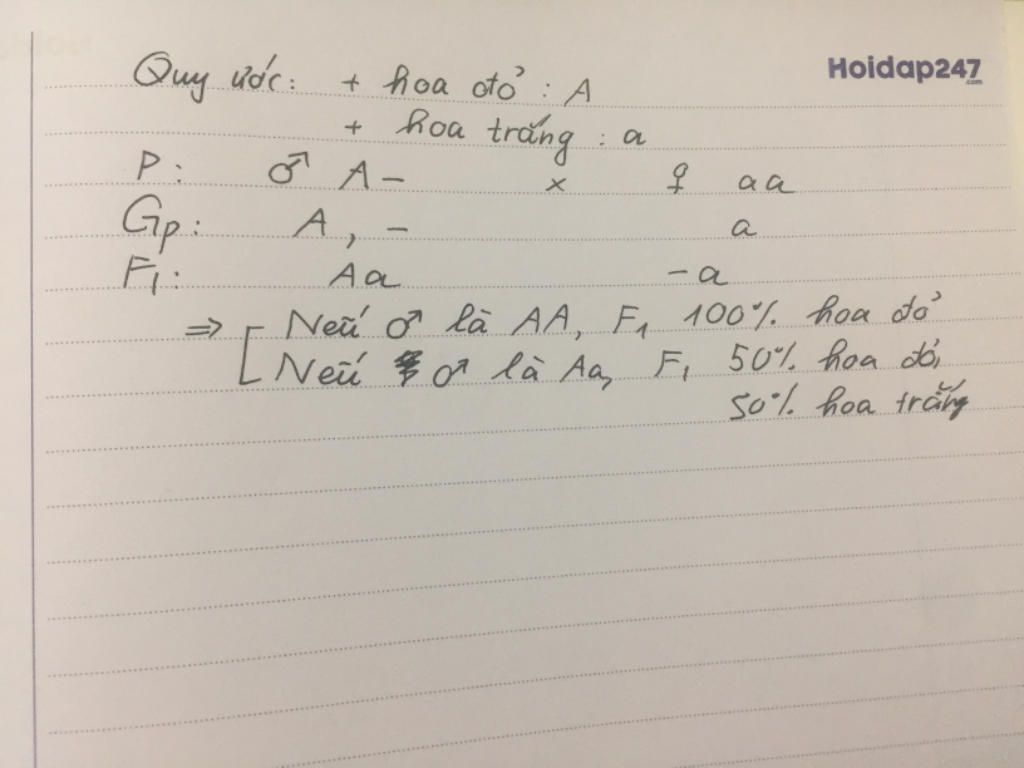 Quy ước: + hoa đỏ : A
Hoidap247.com
+ hoa trắng : a
P: ♂ A- × ♀ aa
Gp: A, - a
F1: Aa -a
⇒ [ Nếu ♂ là AA, F1 100% hoa đỏ
Nếu ♂ là Aa, F1 50% hoa đỏ,
50% hoa trắng